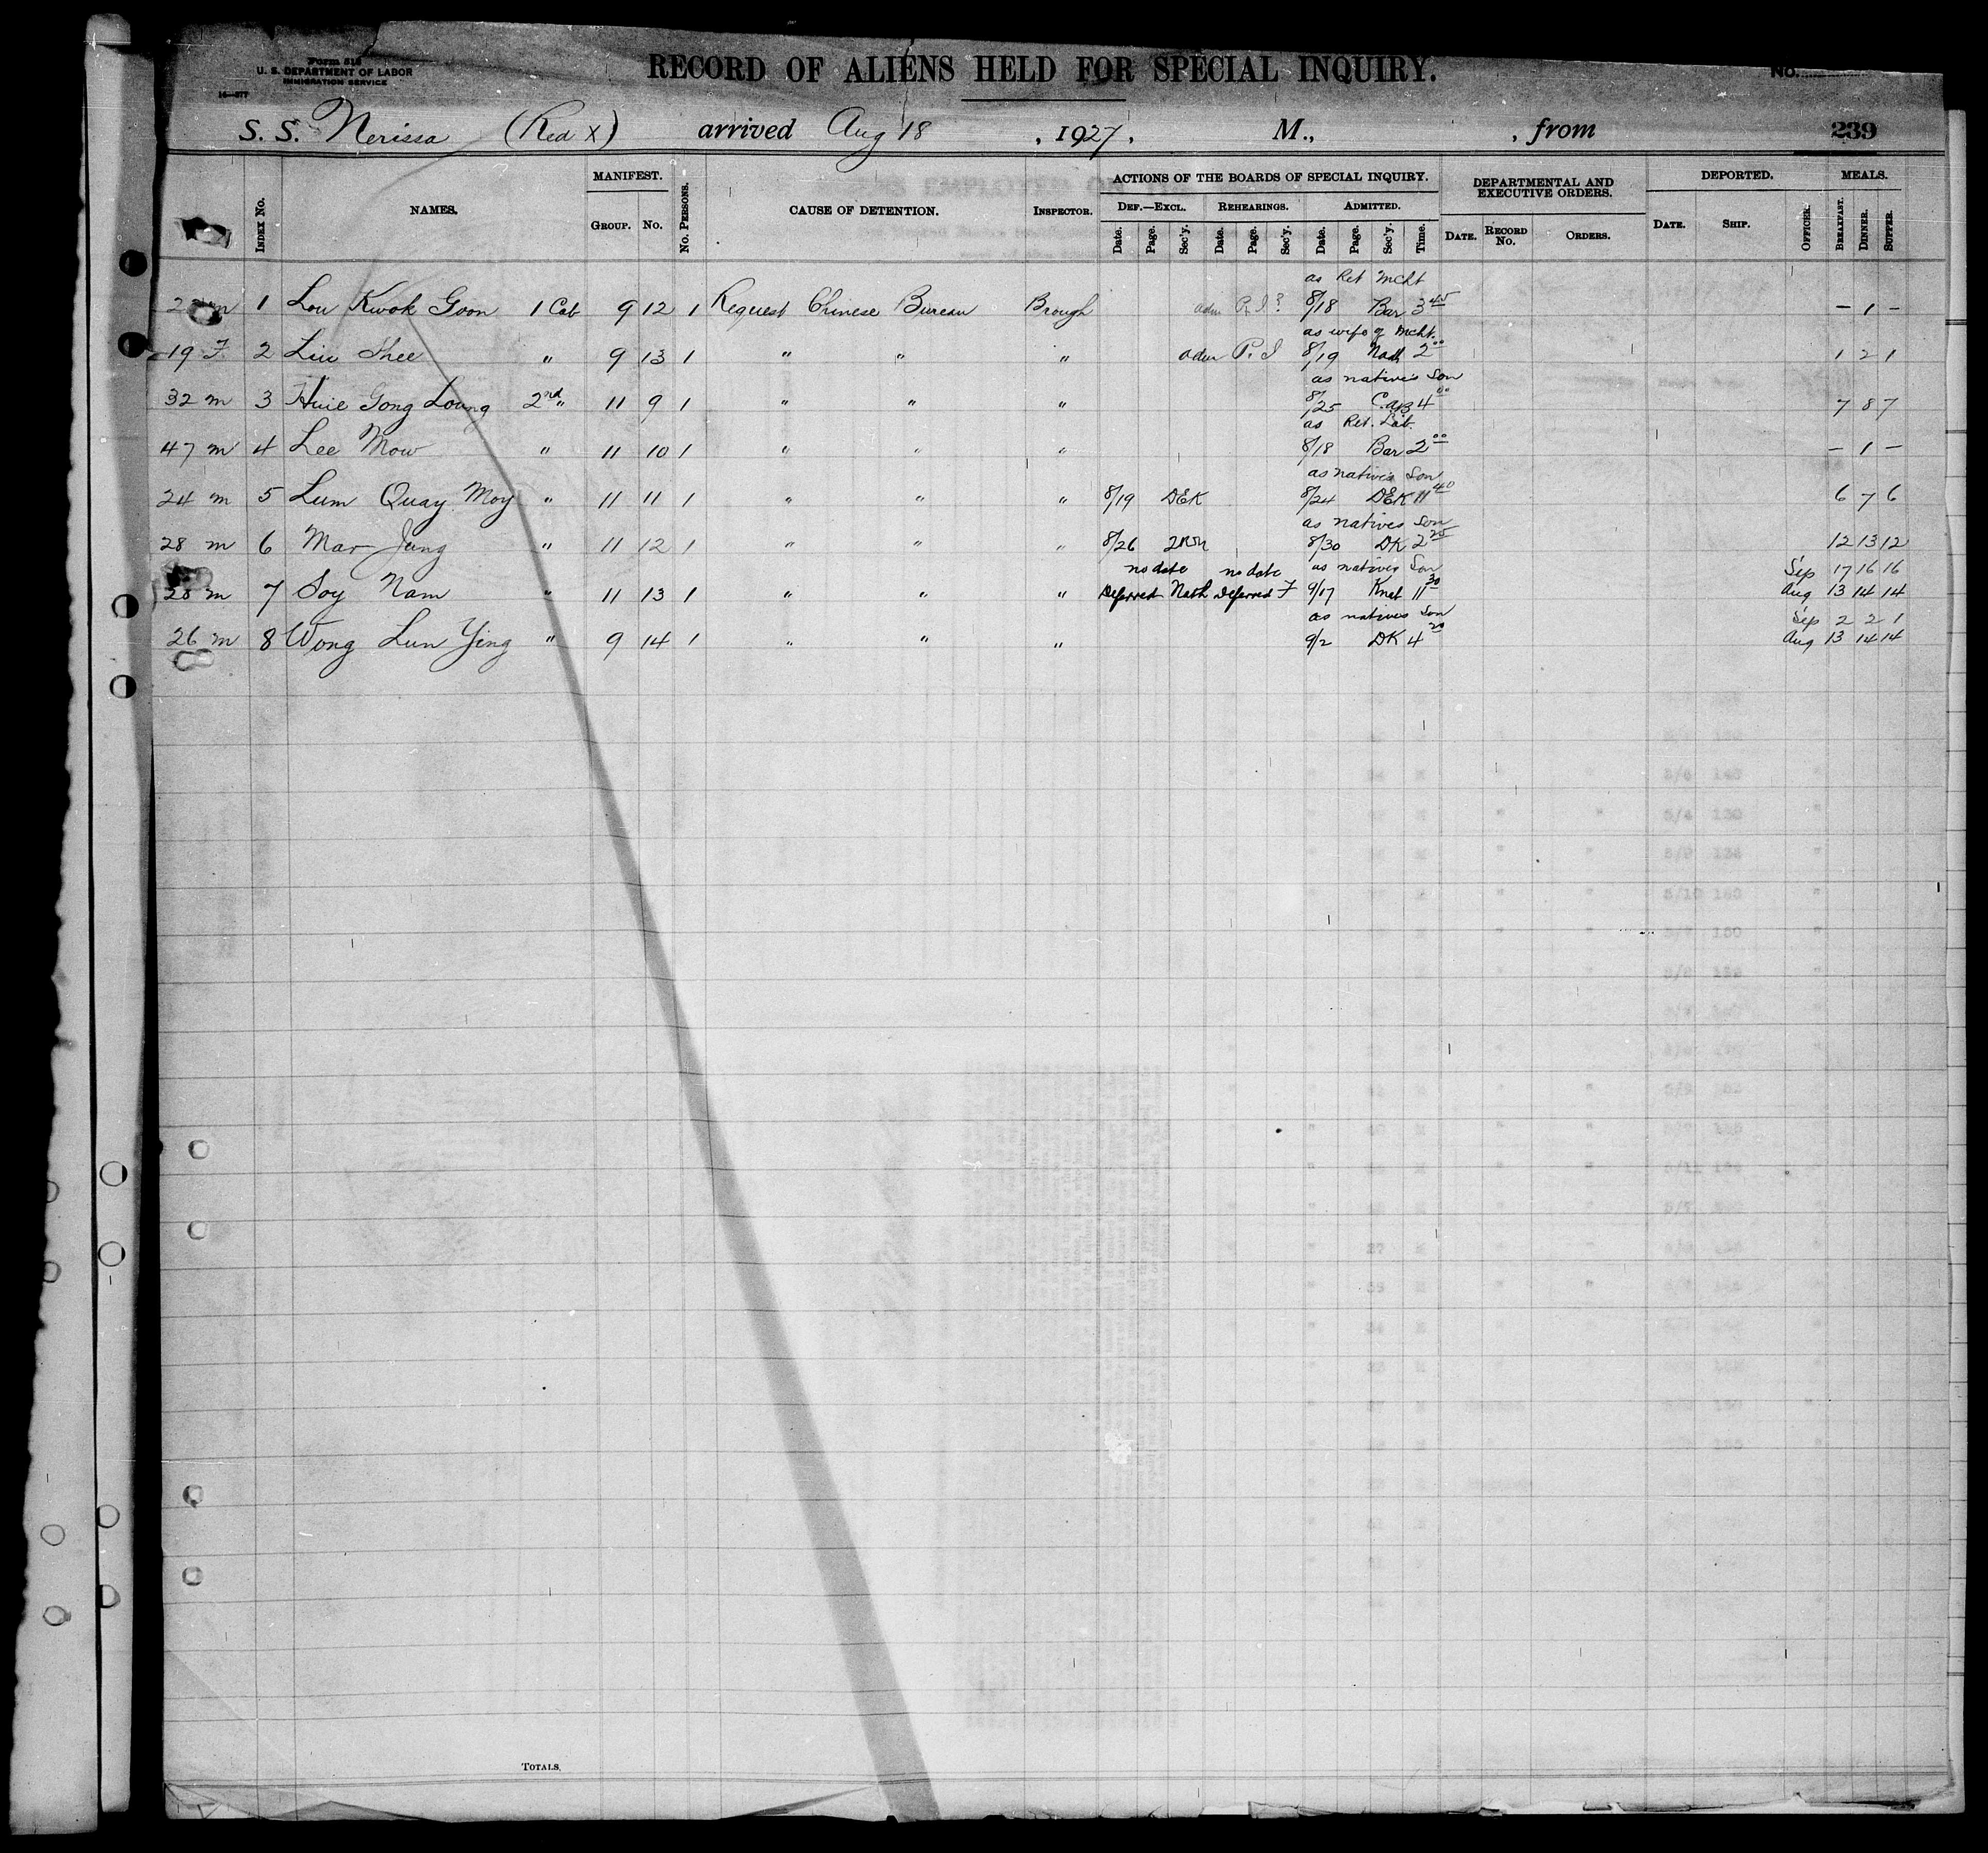 Form 518
U. S. DEPARTMENT OF LABOR
IMMIGRATION SERVICE
16—577
RECORD OF ALIENS HELD FOR SPECIAL INQUIRY.
No.
S. S. Nerissa (Red X) arrived Aug 18, 1927, M., , from 239
INDEX No. NAMES. MANIFEST. GROUP. No. No. PERSONS. CAUSE OF DETENTION. INSPECTOR. ACTIONS OF THE BOARDS OF SPECIAL INQUIRY. DEF.—EXCL. Date. Page. Sec'y. REHEARINGS. Date. Page. Sec'y. ADMITTED. Date. Page. Sec'y. Time. DEPARTMENTAL AND EXECUTIVE ORDERS. DATE. RECORD No. ORDERS. DEPORTED. DATE. SHIP. OFFICER. MEALS. BREAKFAST. DINNER. SUPPER.
as Ret Mcht
m 1 Lou Kwok Goon 1 Cab 9 12 1 Request Chinese Bureau Brough adm P. I? 8/18 Bar 3 45 – 1 –
as wife of Mcht.
19 F 2 Liu Shee " 9 13 1 " " " adm P. I 8/19 Nath 2 00 1 2 1
as natives Son
32 m 3 Huie Gong Loung 2nd " 11 9 1 " " " 8/25 Cap 4 00 7 8 7
as Ret. Lab.
47 m 4 Lee Mow " 11 10 1 " " " 8/18 Bar 2 00 – 1 –
as natives Son
24 m 5 Lum Quay Moy " 11 11 1 " " " 8/19 DEK 8/24 DEK 11 40 6 7 6
as natives son
28 m 6 Mar Jung " 11 12 1 " " " 8/26 8/30 DK 2 25 12 13 12
no date no date as natives Son Sep 17 16 16
28 m 7 Soy Nam " 11 13 1 " " " Deferred Nath Deferred F 9/17 Knel 11 30 Aug 13 14 14
as natives son Sep 2 2 1
26 m 8 Wong Lun Ying " 9 14 1 " " " 9/2 DK 4 20 Aug 13 14 14
TOTALS.